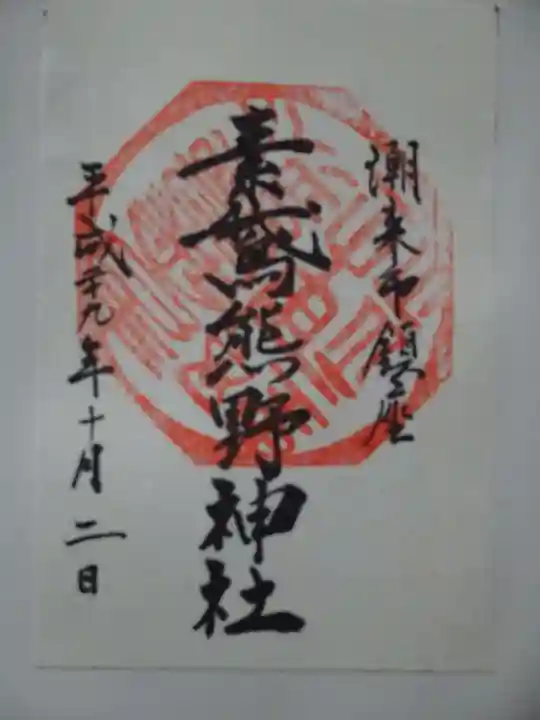 潮来市鎮座
素鵞熊野神社
平成廿九年十月二日